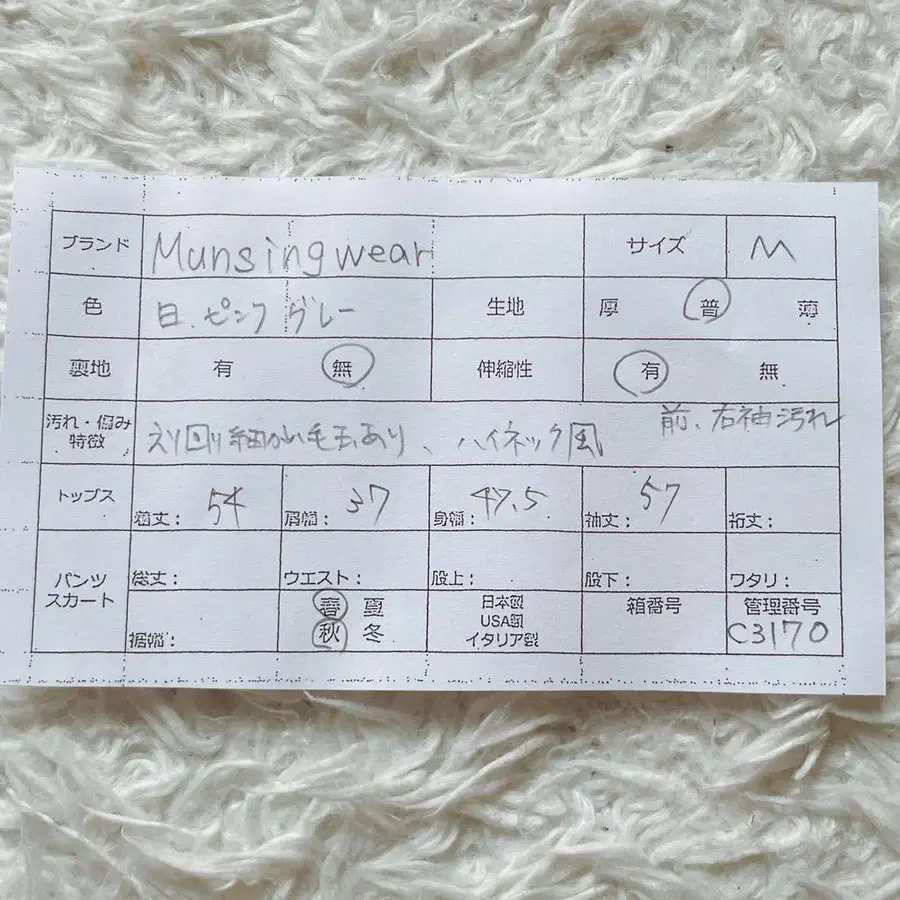 ブランド Munsingwear サイズ M
色 白、ピンク グレー 生地 厚 普 薄
裏地 有 無 伸縮性 有 無
汚れ・傷み
特徴 えり回り細かい毛玉あり、ハイネック風 前、右袖汚れ
トップス 着丈： 54 肩幅： 37 身幅： 47.5 袖丈： 57 裄丈：
パンツ
スカート 総丈： ウエスト： 股上： 股下： ワタリ：
裾幅： 春 夏
秋 冬
日本製
USA製
イタリア製
箱番号 管理番号
C3170